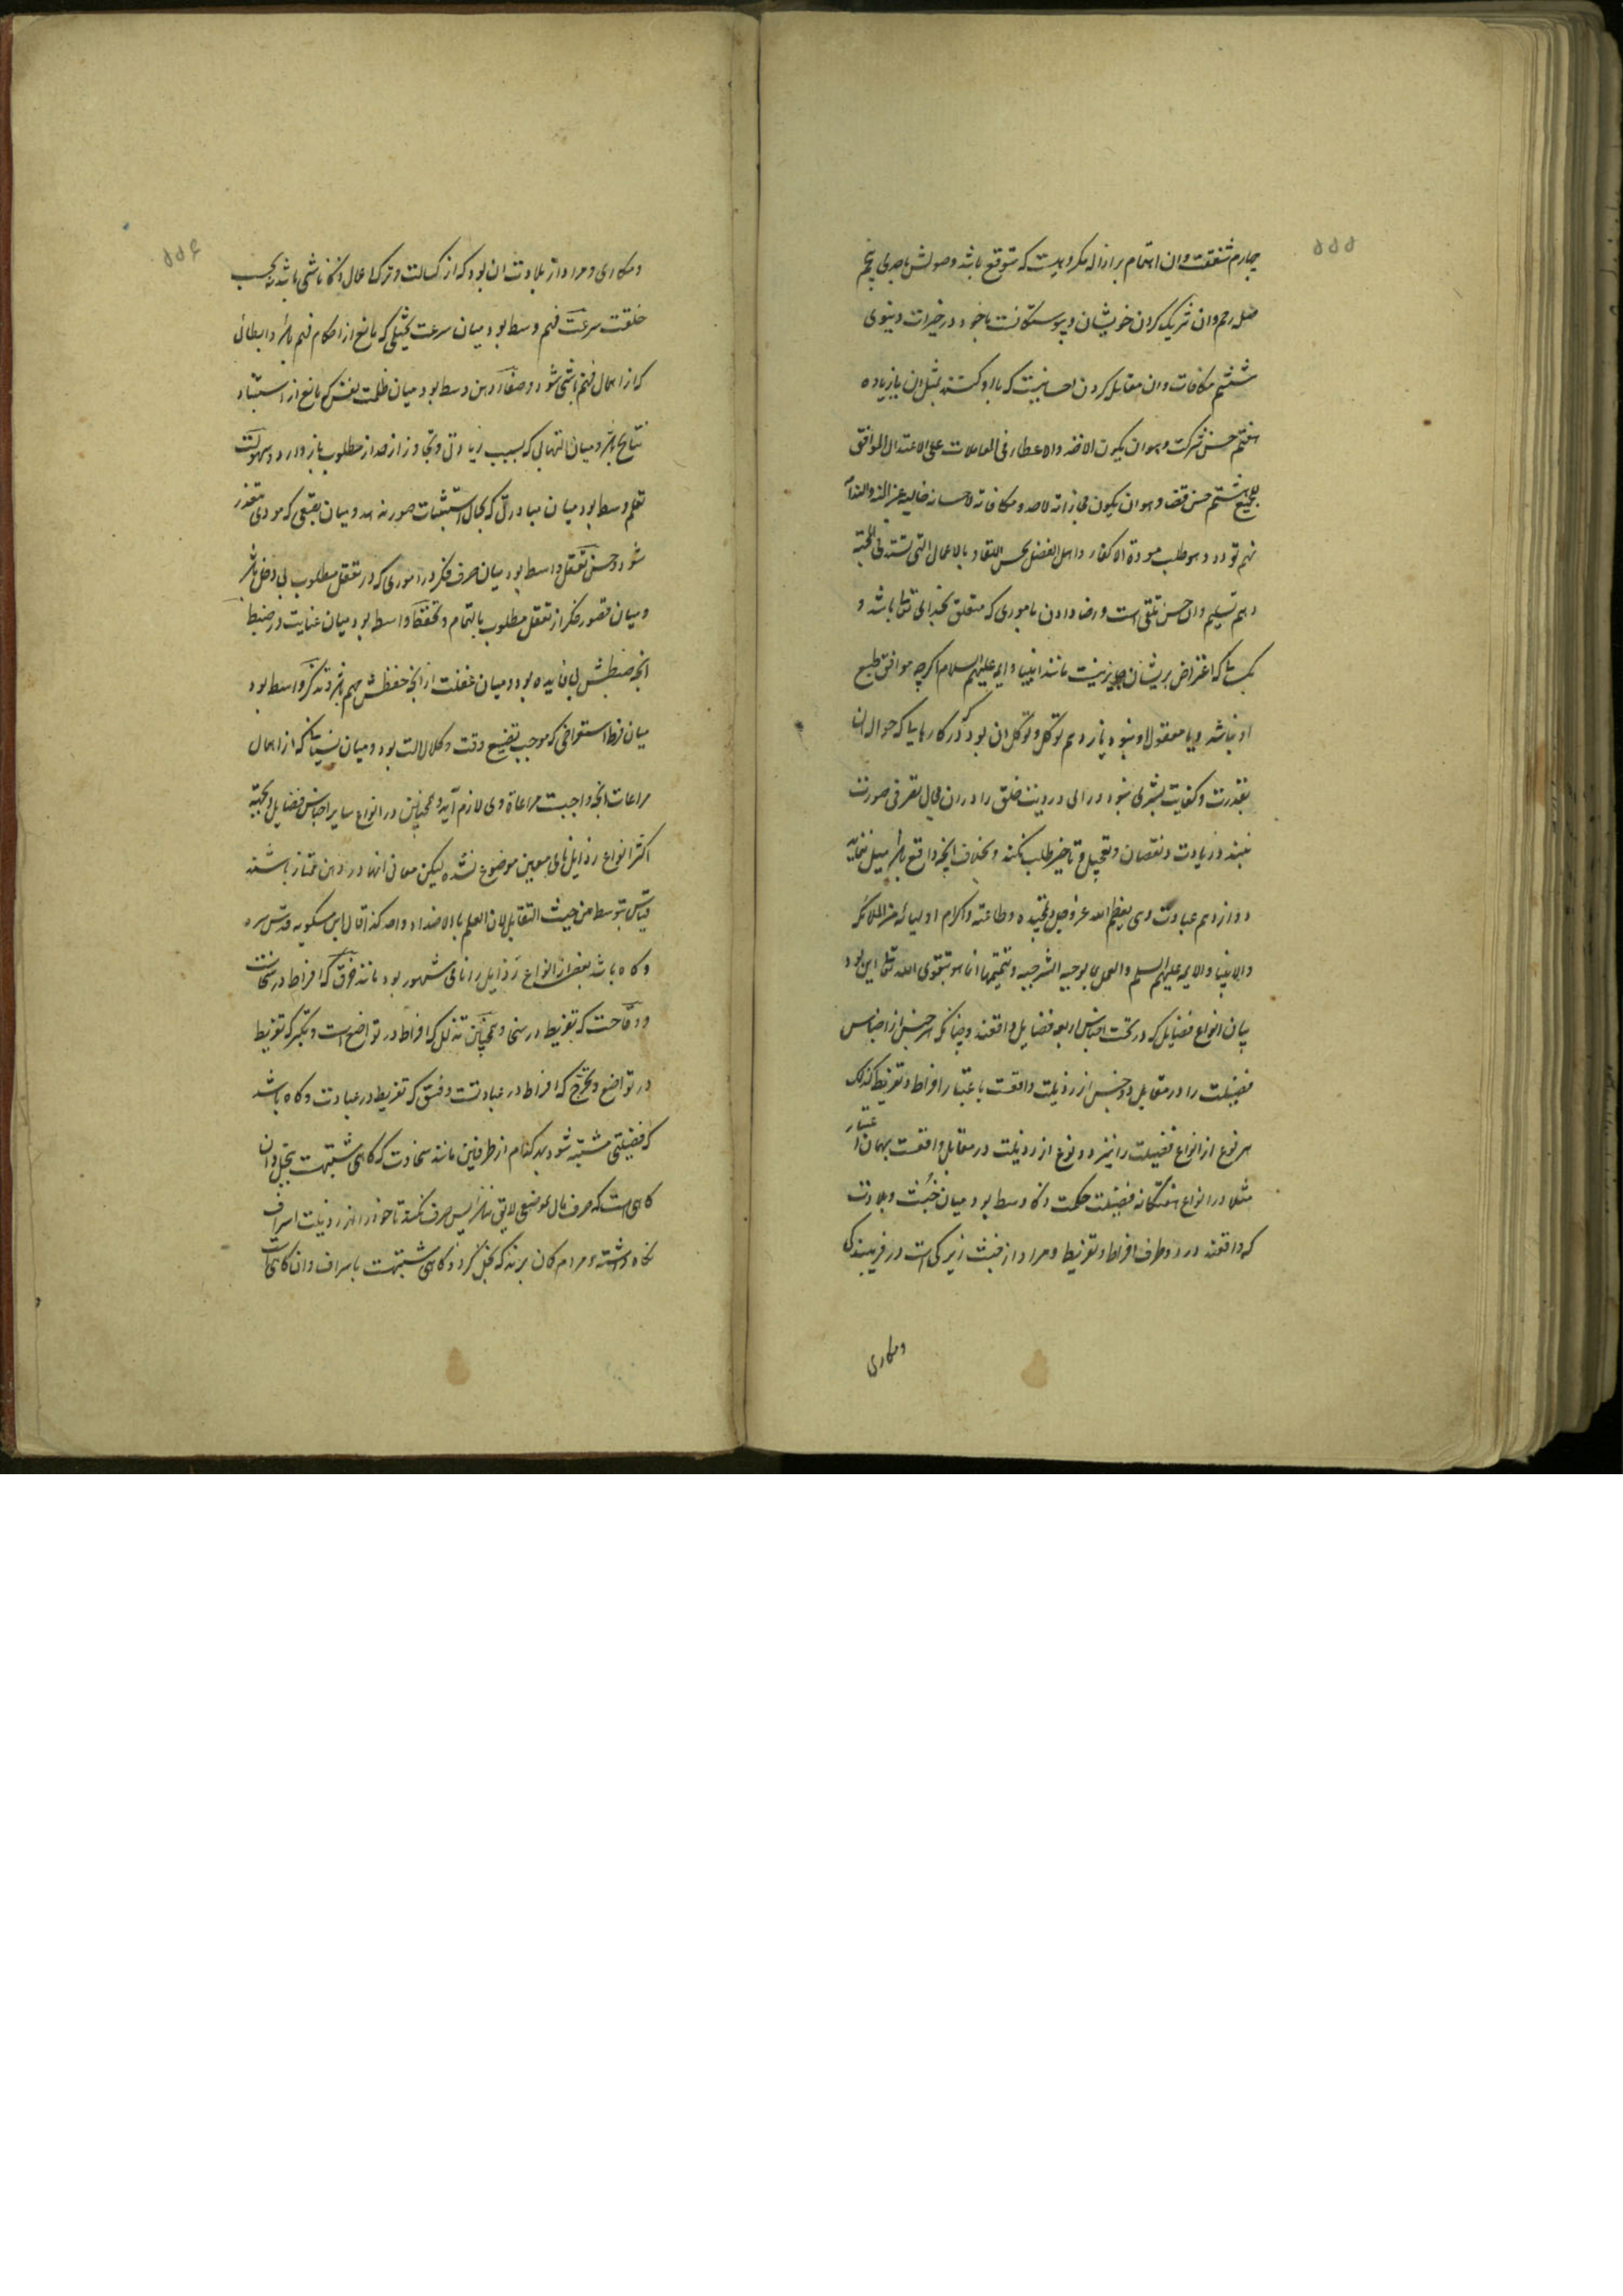 ۵۵۵
چهارم شفقت وان اهتمام بر ازاله مکروهیست که متوقع باشد وصولش باحدی پنجم
صله رحم وان شریک کردن خویشان وپیوستکانست باخود در خیرات دنیوی
ششم مکافات وان مقابل کردن احسانیست که با او کنند بمثل ان یا زیاده
هفتم حسن شرکت وهو ان یکون الاخذ والاعطاء فی المعاملات علی الاعتدال الموافق
للجمیع هشتم حسن قضا وهو ان یکون مجازاته لاحد ومکافاته لاحسانه خالیه عن المنه والندامه
نهم تودد وهو طلب مودة الاکفاء واهل الفضل بحسن اللقاء وبالاعمال التی تستدعی المحبه
دهم تسلیم وان حسن تلقی است ورضا دادن باموری که متعلق بخدای تعالی باشد و
بکسانیکه اعتراض بریشان جایز نیست مانند انبیا وایمه علیهم السلام اکرچه موافق طبع
او نباشد ویا معقول او نبود یازدهم توکل وتوکل ان بود که در کارهاییکه حواله ان
بقدرت وکفایت بشری نبود ورای ورویت خلق را در ان مجال تصرفی صورت
نبندد زیادت ونقصان وتعجیل وتاخیر طلب نکند وبخلاف انچه واقع باشد میل ننماید
دوازدهم عبادت وهی تعظیم الله عز وجل وتمجیده وطاعته واکرام اولیائه من الملائکه
والانبیا والایمه علیهم السلم والعمل بما یوجبه الشریعه وتتمیمها انما هو بتقوی الله تعالی این بود
بیان انواع فضایل که در تحت اجناس اربعه فضایل واقعند وچنانکه هر جنس از اجناس
فضیلت را در مقابل دو جنس از رذیلت واقعست باعتبار افراط وتفریط کذلک
هر نوع از انواع فضیلت را نیز دو نوع از رذیلت در مقابل واقعست بهمان اعتبار
مثلا در انواع هفتکانه فضیلت حکمت ذکا وسط بود میان خبث وبلادت
که واقعند در دو طرف افراط وتفریط ومراد از خبث زیرکی است در فریبندکی
ومکاری
۵۵۶
ومکاری ومراد از بلادت ان بود که از کسالت وترک اعمال ذکا ناشی باشد نه بحسب
خلقت سرعت فهم وسط بود میان سرعت تخیلی که مانع از احکام فهم باشد وابطائی
که از اهمال فهم ناشی شود وصفاء ذهن وسط بود میان ظلمت نفس که مانع از استنباط
نتایج باشد ومیان التهابی که بسبب زیادتی وتجاوز از حد از مطلوب باز دارد وسهولت
تعلم وسط بود میان مبادرتی که مجال استثبات صور ندهد ومیان تصعبی که مودی بتعذر
شود وحسن تعقل واسطه بود میان صرف فکر در اموری که در تعقل مطلوب بی دخل باشد
ومیان قصور فکر از تعقل مطلوب بالتمام وتحفظ واسطه بود میان عنایت در ضبط
انچه ضبطش بی فایده بود ومیان غفلت از انچه حفظش مهم باشد وتذکر واسطه بود
میان فرط استعراضی که موجب تضییع وقت وکلال الت بود ومیان نسیانی که از اهمال
مراعات انچه واجبست مراعاة وی لازم آید وهمچنین در انواع سایر اجناس فضایل وبجهته
اکثر انواع رذایل نامی معین موضوع نشده لیکن معانی انها در ذهن ممتاز باشند
قیاس بتوسط من حیث التقابل لان العلم بالاضداد واحد کذا قال ابن مسکویه قدس سره
وکاه باشد بعضی از انواع رذایل را نامی مشهور بود مانند خرق که افراط در سخاست
ووقاحت که تفریط در سخا وهمچنین تذلل که افراط در تواضع است وتکبر که تفریط
در تواضع وتحرج که افراط در عبادتست وفسق که تفریط در عبادت وکاه باشد
که فضیلتی مشتبه شود بهر کدام از طرفین مانند سخاوت که کاهی مشتبهست ببخل وان
کاهی است که صرف مال بموضعی لایق نباشد پس صرف نکند تا خود را از رذیلت اسراف
نکاه داشته ومردم کمان برند که بخل کرد وکاهی مشتبهست باسراف وان کاهی است